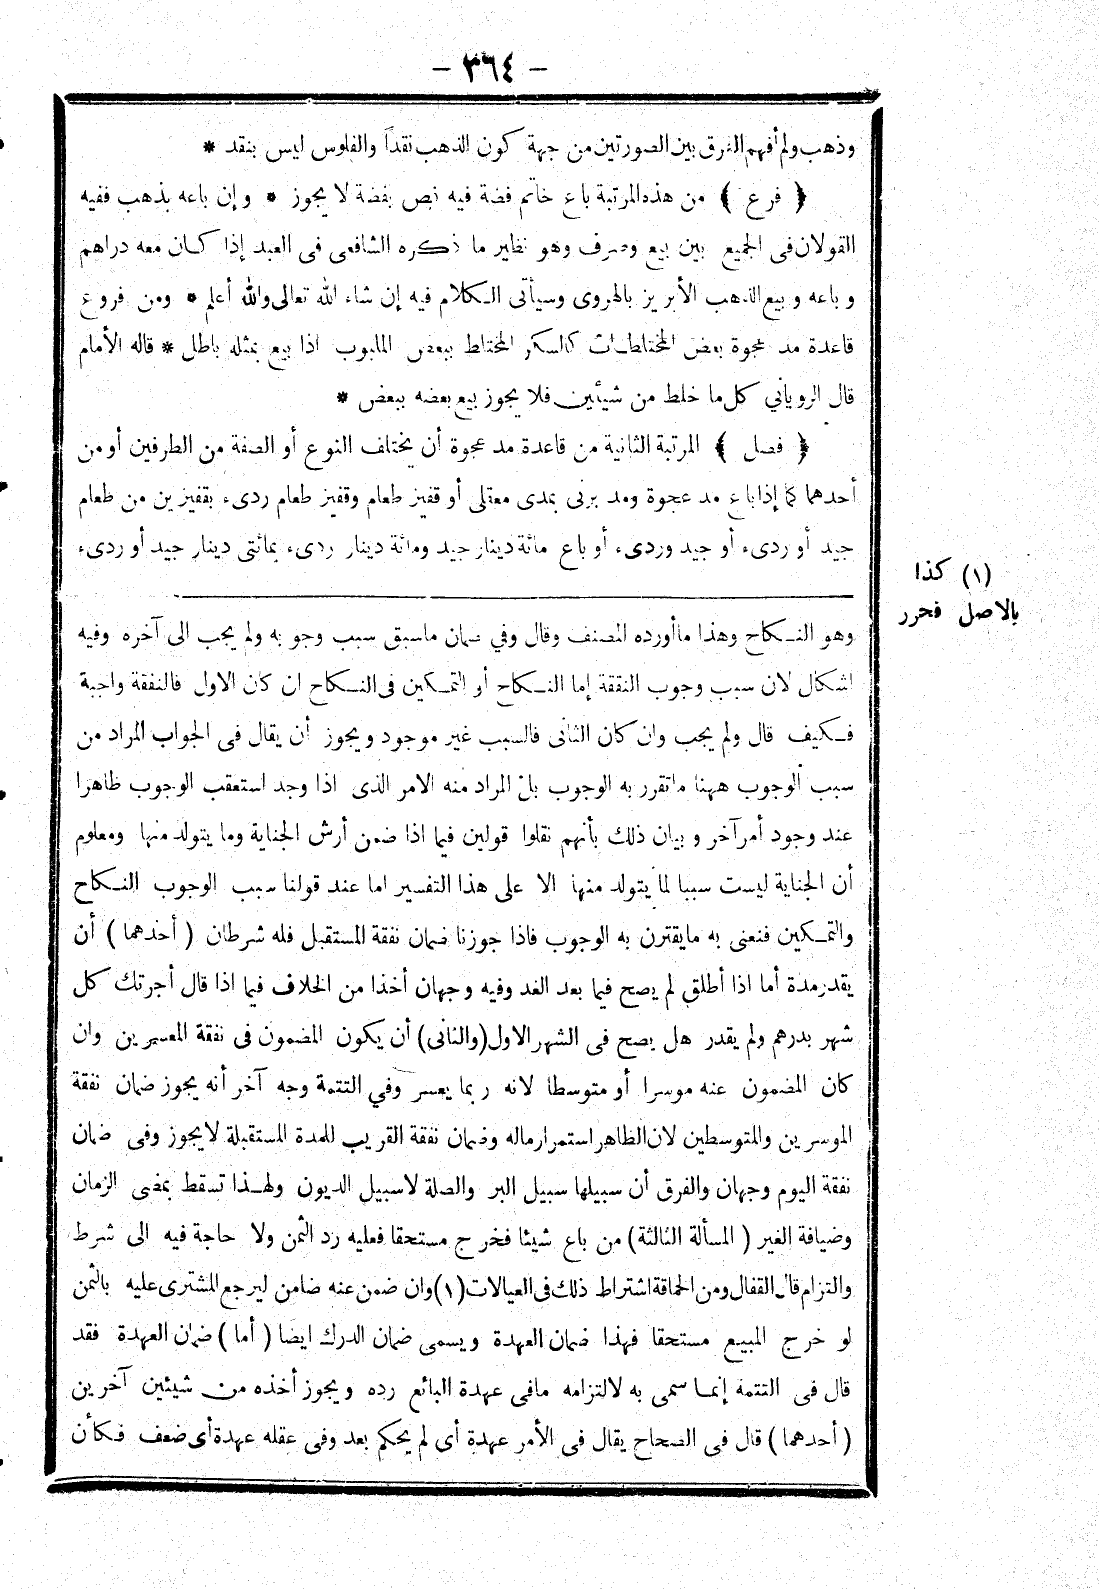 – ٣٦٤ –
وذهب ولم أفهم الفرق بين الصورتين من جهة كون الذهب نقداً والفلوس ليس بنقد *
﴿ فرع ﴾ من هذه المرتبة باع خاتم فضة فيه نص بفضة لا يجوز * وإن باعه بذهب ففيه
القولان في الجميع بين بيع وصرف وهو نظير ما ذكره الشافعى فى العبد إذا كان معه دراهم
وباعه وبيع الذهب الأبريز بالهروى وسيأتى الكلام فيه إن شاء الله تعالى والله أعلم * ومن فروع
قاعدة مد عجوة بعض المختلطات كالسكر المختلط ببعض الملبوب اذا بيع بمثله باطل * قاله الأمام
قال الرويانى كل ما خلط من شيئين فلا يجوز بيع بعضه ببعض *
﴿ فصل ﴾ المرتبة الثانية من قاعدة مد عجوة أن يختلف النوع أو الصفة من الطرفين أو من
أحدهما كما إذا باع مد عجوة ومد برنى بمدى معقلى أو قفيز طعام وقفيز طعام ردىء بقفيزين من طعام
جيد أو ردىء أو جيد وردىء أو باع مائة دينار جيد ومائة دينار ردىء بمائتى دينار جيد أو ردىء
(١) كذا
بالاصل فحرر
وهو النكاح وهذا ما أورده المصنف وقال وفي ضمان ماسبق سبب وجوبه ولم يجب الى آخره وفيه
اشكال لان سبب وجوب النفقة إما النكاح أو التمكين فى النكاح ان كان الاول فالنفقة واجبة
فكيف قال ولم يجب وان كان الثانى فالسبب غير موجود ويجوز أن يقال فى الجواب المراد من
سبب الوجوب ههنا ما تقرر به الوجوب بل المراد منه الامر الذى اذا وجد استعقب الوجوب ظاهرا
عند وجود أمر آخر وبيان ذلك بأنهم نقلوا قولين فيما اذا ضمن أرش الجناية وما يتولد منها ومعلوم
أن الجناية ليست سببا لما يتولد منها الا على هذا التفسير اما عند قولنا سبب الوجوب النكاح
والتمكين فنعنى به مايقترن به الوجوب فاذا جوزنا ضمان نفقة المستقبل فله شرطان ( أحدهما ) أن
يقدر مدة أما اذا أطلق لم يصح فيما بعد الغد وفيه وجهان أخذا من الخلاف فيما اذا قال أجرتك كل
شهر بدرهم ولم يقدر هل يصح فى الشهر الاول (والثانى) أن يكون المضمون فى نفقة المعسرين وان
كان المضمون عنه موسرا أو متوسطا لانه ربما يعسر وفي التتمة وجه آخر أنه يجوز ضمان نفقة
الموسرين والمتوسطين لان الظاهر استمرار ماله وضمان نفقة القريب للمدة المستقبلة لايجوز وفى ضمان
نفقة اليوم وجهان والفرق أن سبيلها سبيل البر والصلة لاسبيل الديون ولهذا تسقط بمضى الزمان
وضيافة الغير ( المسألة الثالثة) من باع شيئا فخرج مستحقا فعليه رد الثمن ولا حاجة فيه الى شرط
والتزام قال القفال ومن الحماقة اشتراط ذلك فى العيالات (١) وان ضمن عنه ضامن ليرجع المشترى عليه بالثمن
لو خرج المبيع مستحقا فهذا ضمان العهدة ويسمى ضمان الدرك ايضا ( أما ) ضمان العهدة فقد
قال فى التتمة إنما سمى به لالتزامه مافى عهدة البائع رده ويجوز أخذه من شيئين آخرين
( أحدهما ) قال فى الصحاح يقال فى الأمر عهدة أى لم يحكم بعد وفى عقله عهدة أى ضعف فكأن